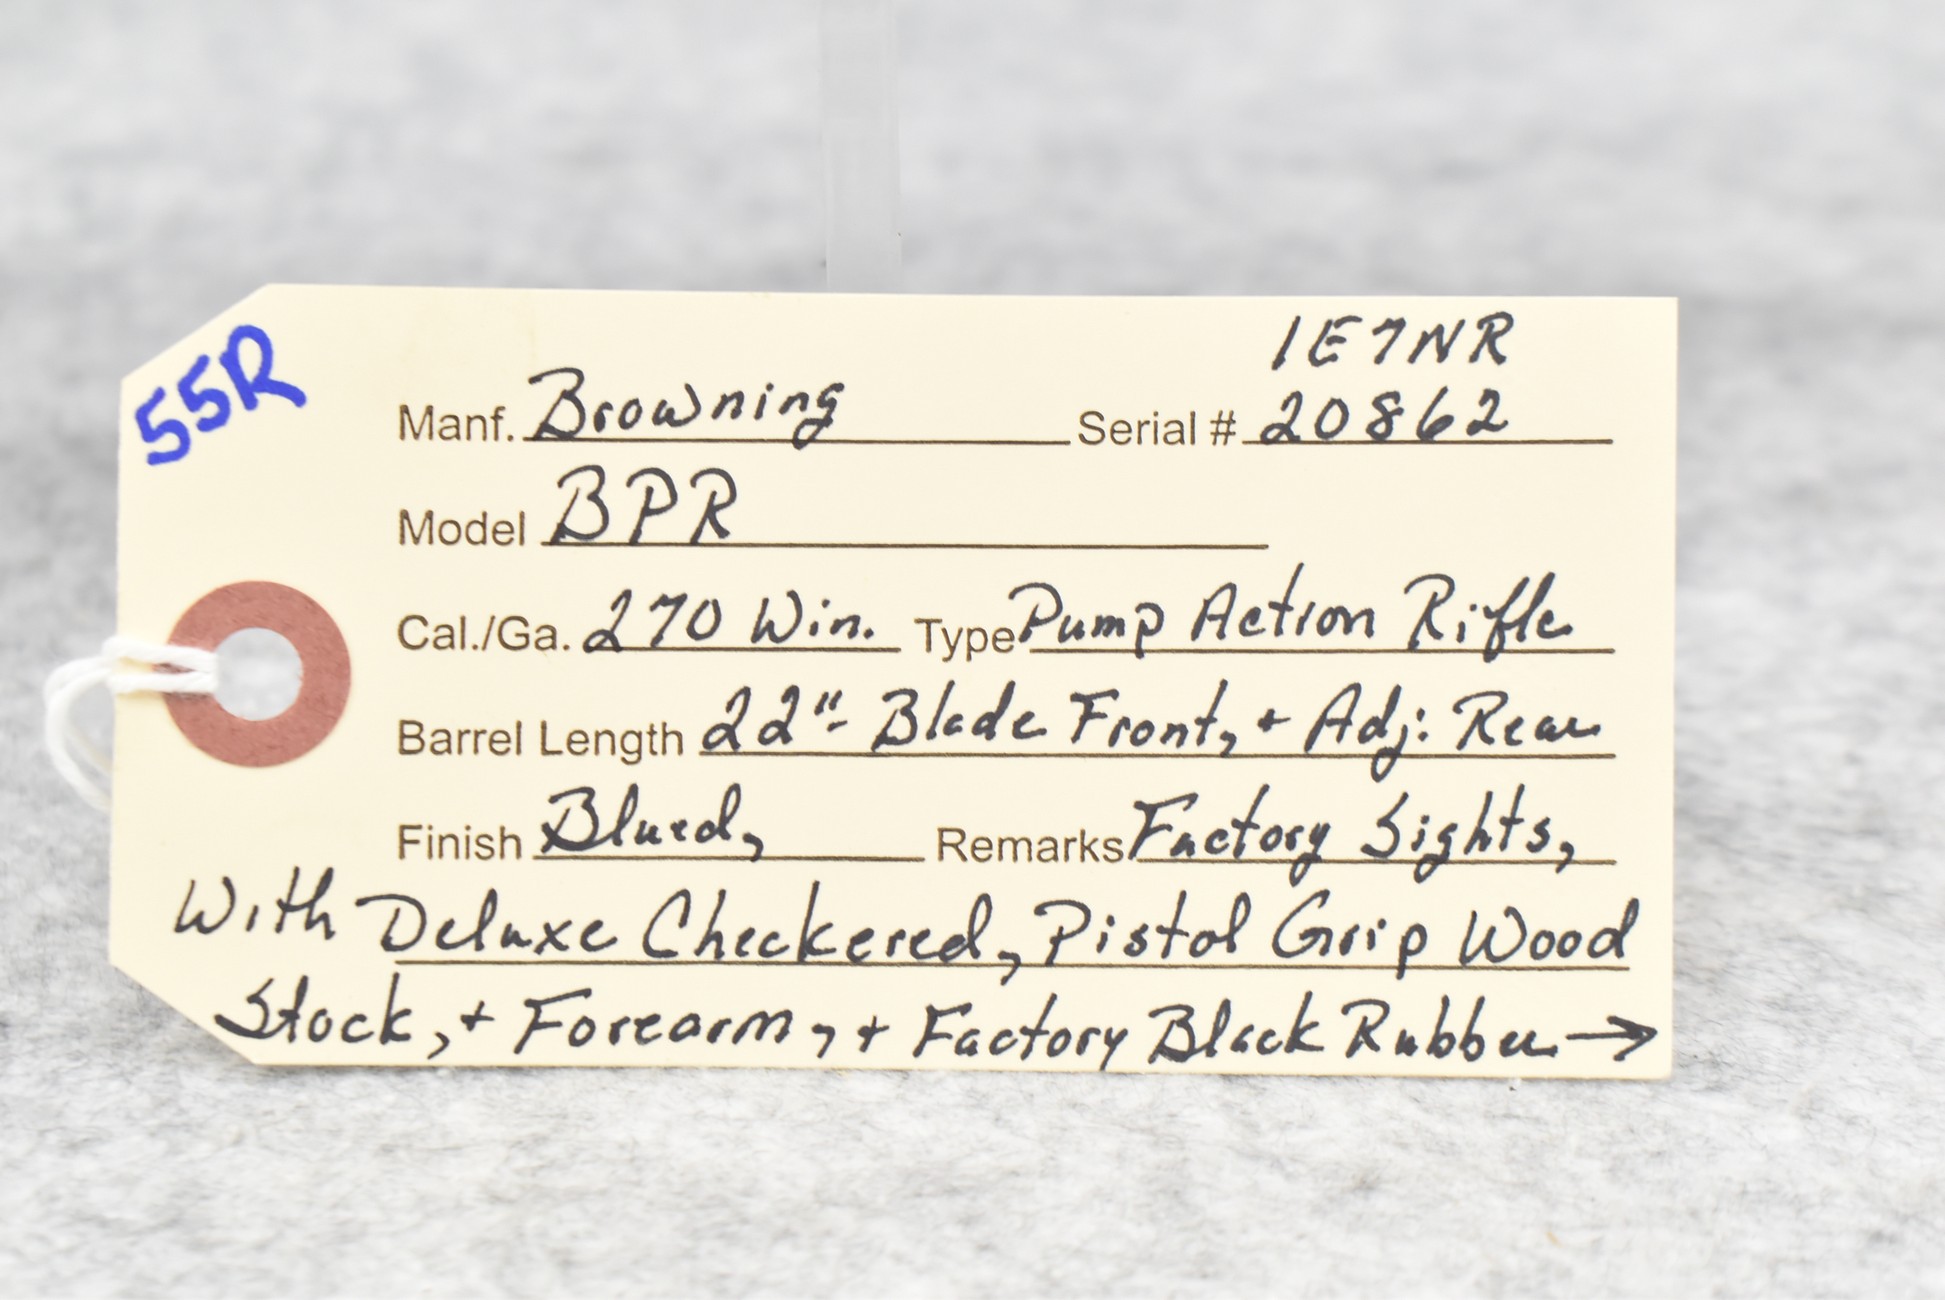 55R
1E7NR
Manf. Browning Serial # 20862
Model BPR
Cal./Ga. 270 Win. Type Pump Action Rifle
Barrel Length 22"- Blade Front, + Adj: Rear
Finish Blued, Remarks Factory Sights,
With Deluxe Checkered, Pistol Grip Wood
Stock, + Forearm, + Factory Black Rubber →